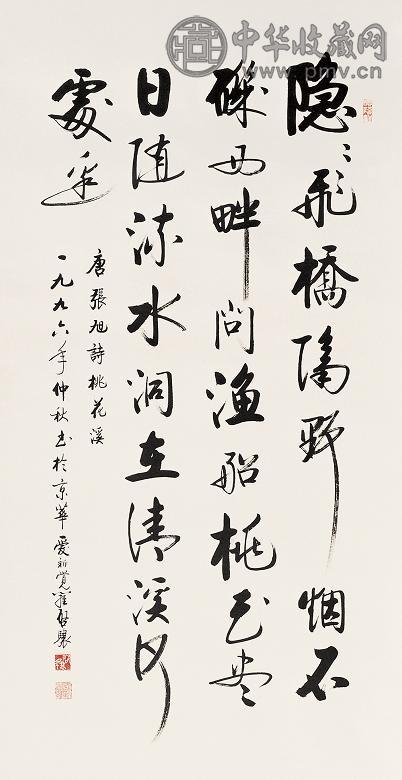 中华收藏网
www.pmv.cn
隐〻飛橋隔野烟石
磯西畔问渔船桃花尽
日随流水洞在清溪何
處边
唐張旭詩桃花溪
一九九六年仲秋书於京華愛新覺羅啓驤